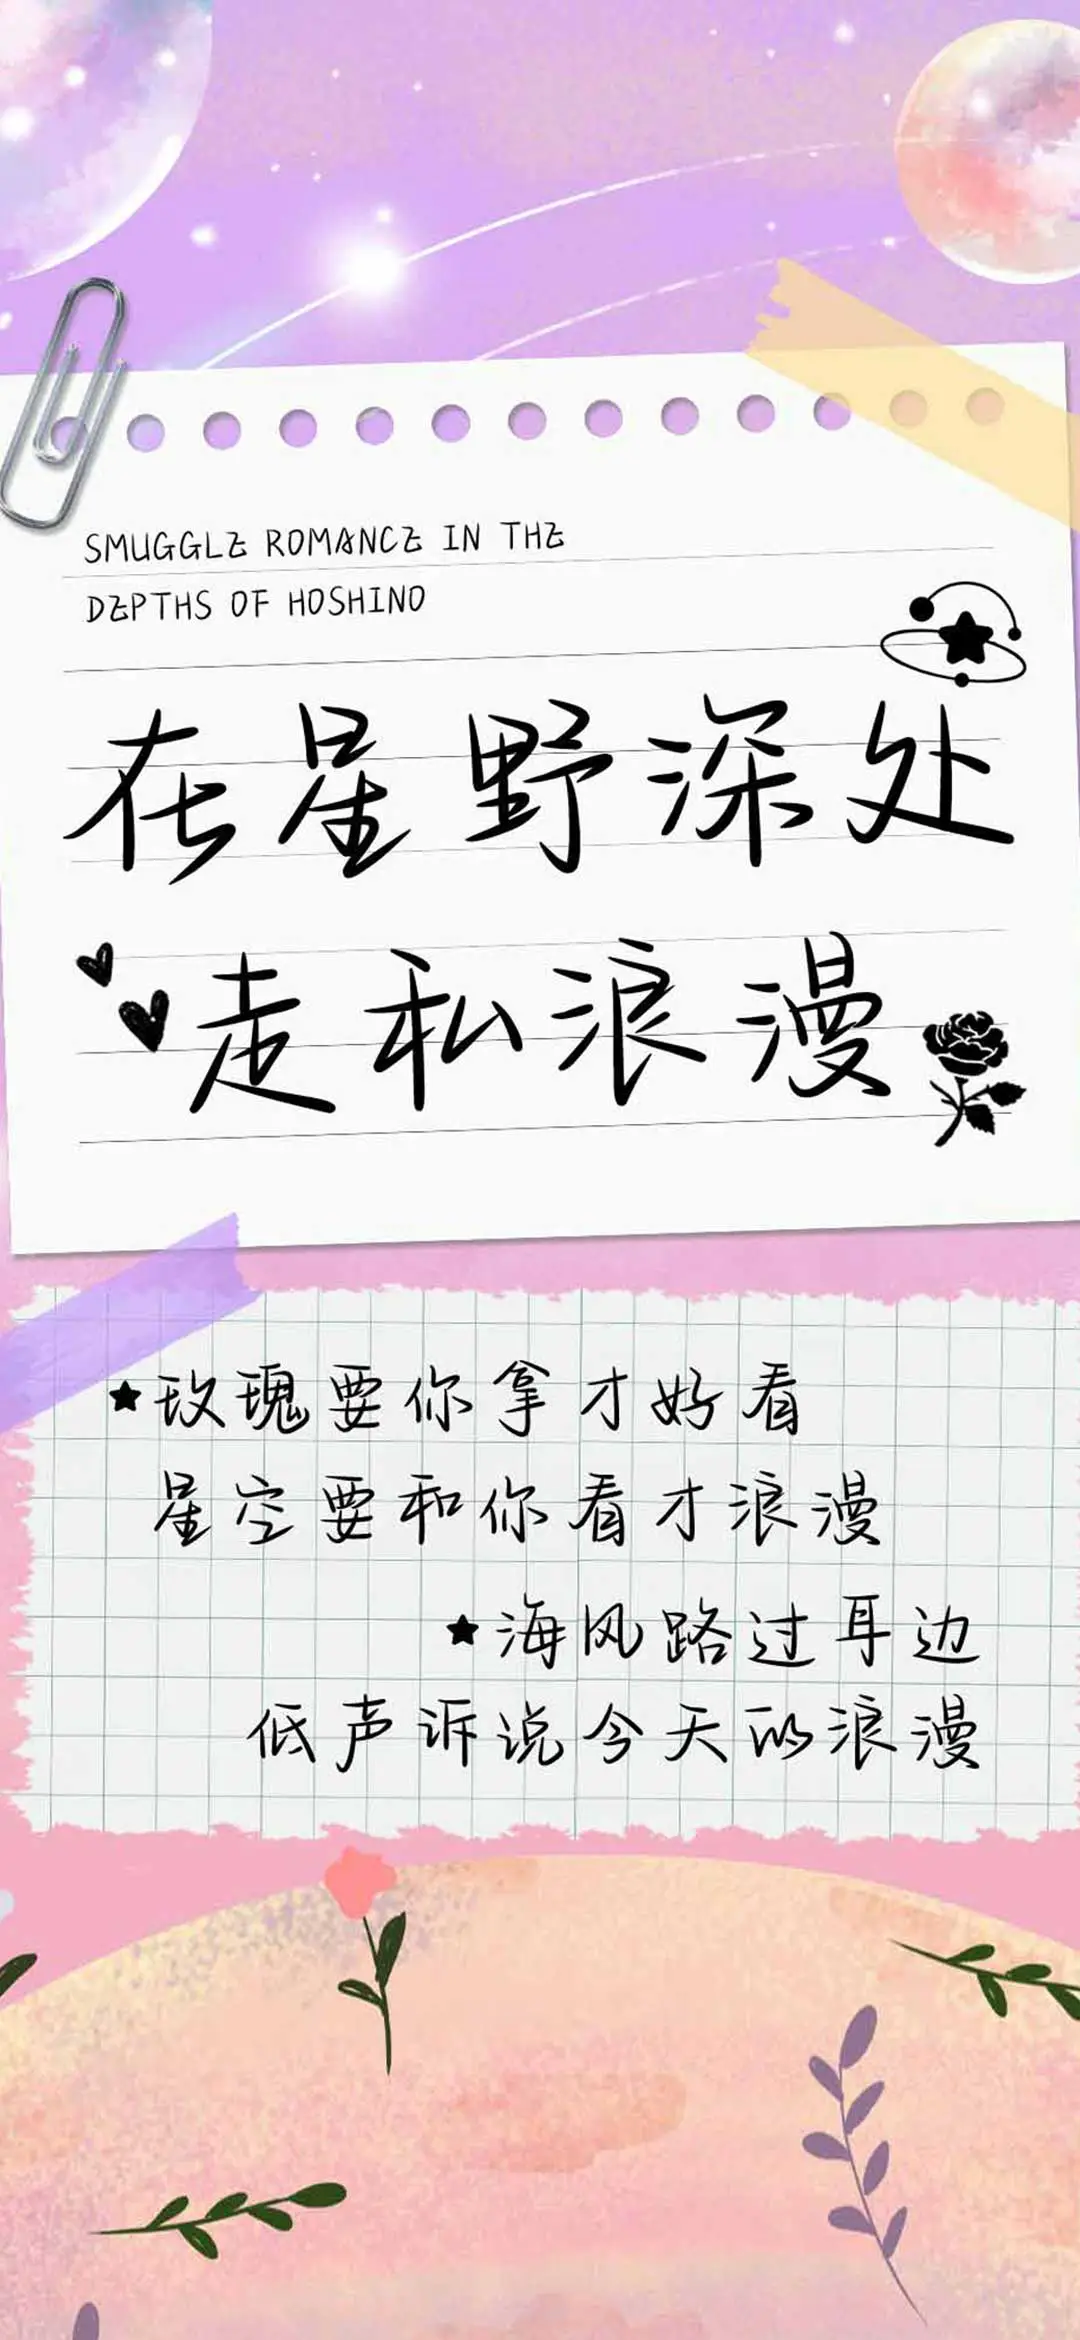 SMUGGLE ROMANCE IN THE
DEPTHS OF HOSHINO
在星野深处
走私浪漫
玫瑰要你拿才好看
星空要和你看才浪漫
海风路过耳边
低声诉说今天的浪漫